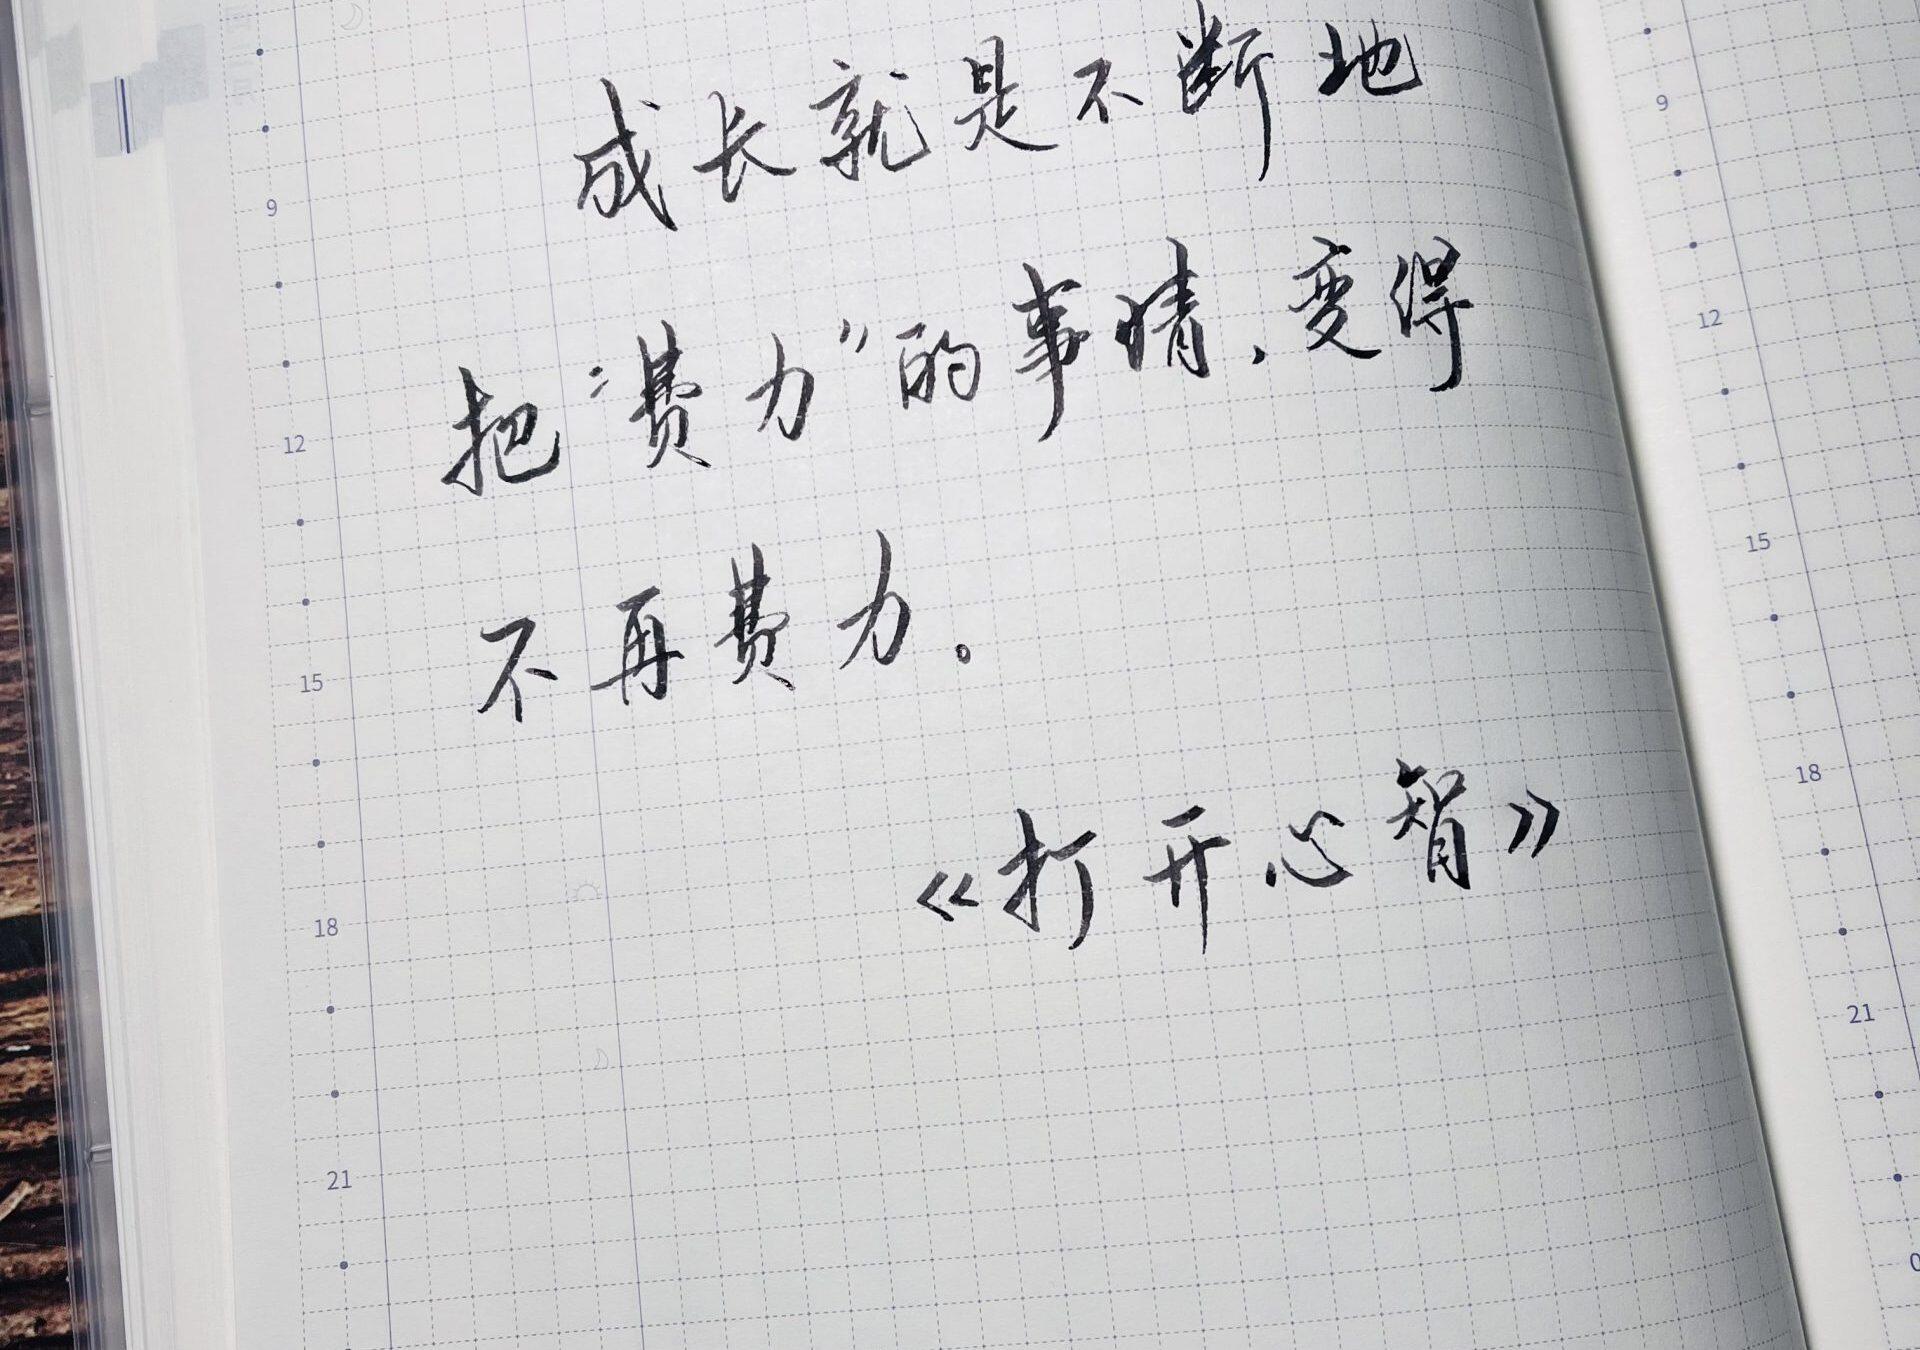 成长就是不断地
把“费力”的事情，变得
不再费力。
《打开心智》
9
12
15
18
21
9
12
15
18
21
0